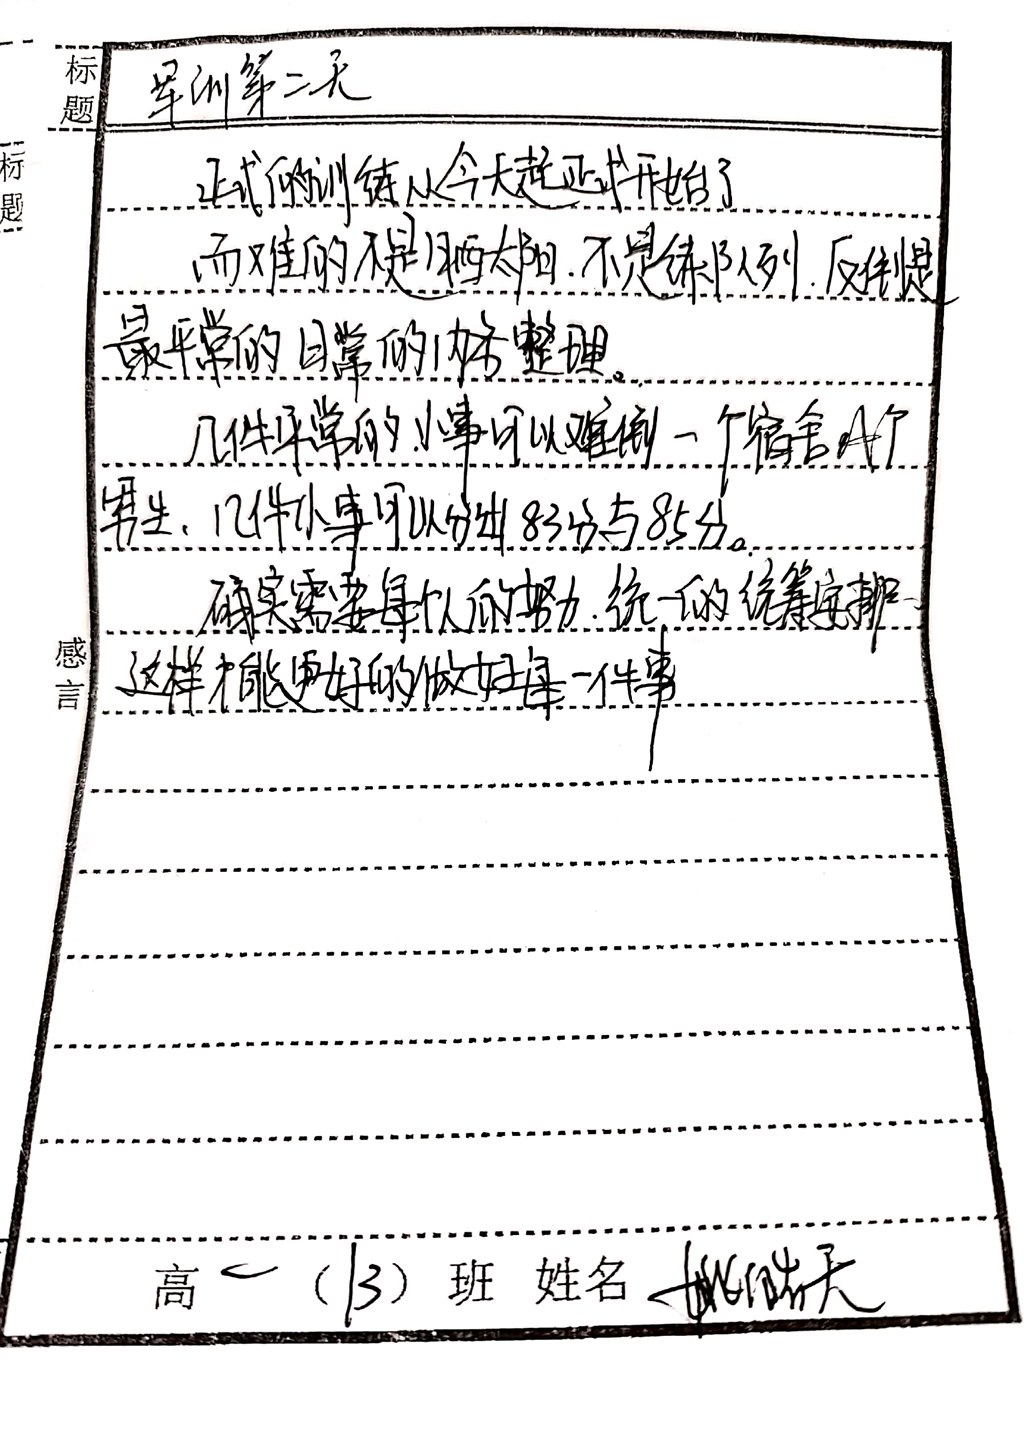 标题
军训第二天
标题
正式的训练从今天起正式开始了
而难的不是晒太阳.不是练队列.反倒是
最平常的日常的内务整理。
几件平常的小事可以难倒一个宿舍个
男生,几件小事可以分出83分与85分。
确实需要每个人的努力.统一的统筹安排
这样才能更好的做好每一件事
感言
高一(13)班 姓名 姚皓天